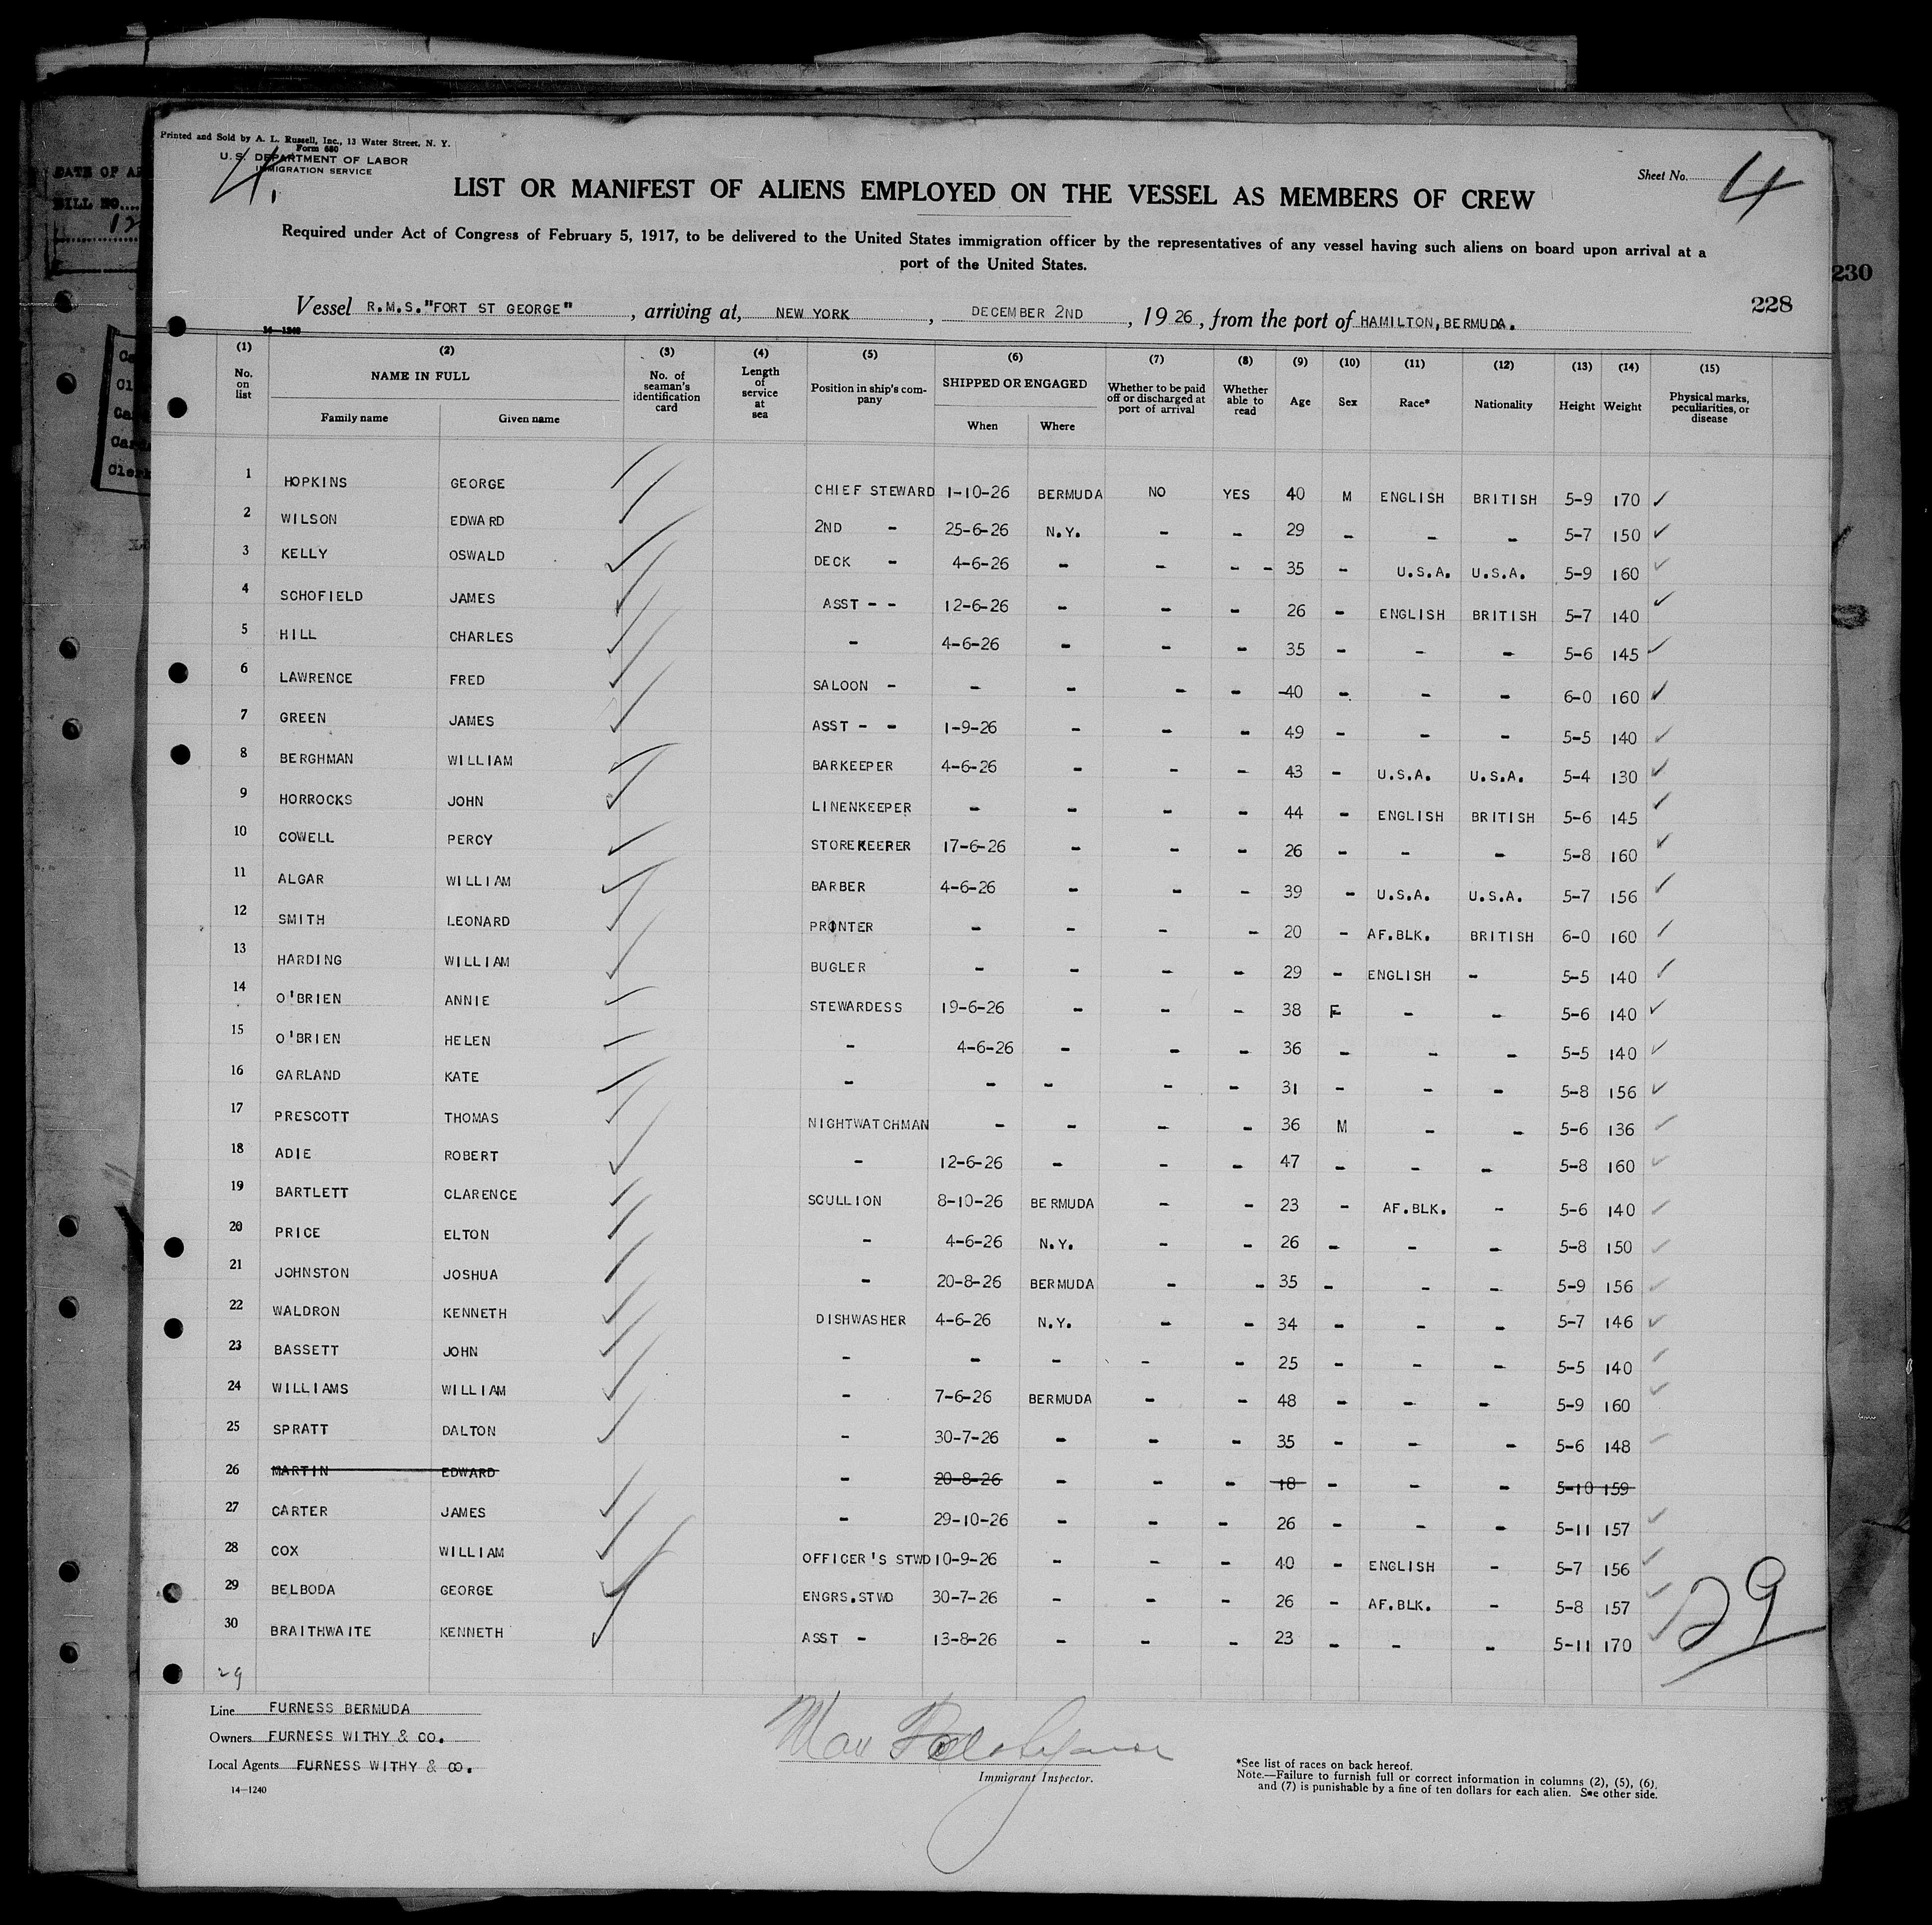 Printed and Sold by A. L. Russell, Inc., 13 Water Street, N. Y.
Form 680
U. S. DEPARTMENT OF LABOR
IMMIGRATION SERVICE
4.
Sheet No. 4
LIST OR MANIFEST OF ALIENS EMPLOYED ON THE VESSEL AS MEMBERS OF CREW
Required under Act of Congress of February 5, 1917, to be delivered to the United States immigration officer by the representatives of any vessel having such aliens on board upon arrival at a
port of the United States.
230
228
Vessel R.M.S."FORT ST GEORGE", arriving at, NEW YORK, DECEMBER 2ND, 1926, from the port of HAMILTON, BERMUDA.
14-1240
(1) (2) (3) (4) (5) (6) (7) (8) (9) (10) (11) (12) (13) (14) (15)
No. on list
NAME IN FULL
Family name Given name
No. of seaman's identification card
Length of service at sea
Position in ship's company
SHIPPED OR ENGAGED
When Where
Whether to be paid off or discharged at port of arrival
Whether able to read
Age
Sex
Race*
Nationality
Height
Weight
Physical marks, peculiarities, or disease
1 HOPKINS GEORGE CHIEF STEWARD 1-10-26 BERMUDA NO YES 40 M ENGLISH BRITISH 5-9 170 ✓
2 WILSON EDWARD 2ND - 25-6-26 N.Y. - - 29 - - - 5-7 150 ✓
3 KELLY OSWALD DECK - 4-6-26 - - - - 35 - U.S.A. U.S.A. 5-9 160 ✓
4 SCHOFIELD JAMES ASST - - 12-6-26 - - - 26 - ENGLISH BRITISH 5-7 140 ✓
5 HILL CHARLES - 4-6-26 - - - 35 - - - 5-6 145 ✓
6 LAWRENCE FRED SALOON - - - - - 40 - - - 6-0 160 ✓
7 GREEN JAMES ASST - - 1-9-26 - - - 49 - - - 5-5 140 ✓
8 BERGHMAN WILLIAM BARKEEPER 4-6-26 - - - 43 - U.S.A. U.S.A. 5-4 130 ✓
9 HORROCKS JOHN LINENKEEPER - - - - 44 - ENGLISH BRITISH 5-6 145 ✓
10 COWELL PERCY STOREKEEPER 17-6-26 - - - 26 - - - 5-8 160 ✓
11 ALGAR WILLIAM BARBER 4-6-26 - - - 39 - U.S.A. U.S.A. 5-7 156 ✓
12 SMITH LEONARD PRINTER - - - - 20 - AF.BLK. BRITISH 6-0 160 ✓
13 HARDING WILLIAM BUGLER - - - - 29 - ENGLISH - 5-5 140 ✓
14 O'BRIEN ANNIE STEWARDESS 19-6-26 - - - 38 F - - 5-6 140 ✓
15 O'BRIEN HELEN - 4-6-26 - - - 36 - - - 5-5 140 ✓
16 GARLAND KATE - - - - - 31 - - - 5-8 156 ✓
17 PRESCOTT THOMAS NIGHTWATCHMAN - - - - 36 M - - 5-6 136 ✓
18 ADIE ROBERT - 12-6-26 - - - 47 - - - 5-8 160 ✓
19 BARTLETT CLARENCE SCULLION 8-10-26 BERMUDA - - 23 - AF.BLK. - 5-6 140 ✓
20 PRICE ELTON - 4-6-26 N.Y. - - 26 - - - 5-8 150 ✓
21 JOHNSTON JOSHUA - 20-8-26 BERMUDA - - 35 - - - 5-9 156 ✓
22 WALDRON KENNETH DISHWASHER 4-6-26 N.Y. - - 34 - - - 5-7 146 ✓
23 BASSETT JOHN - - - - - 25 - - - 5-5 140 ✓
24 WILLIAMS WILLIAM - 7-6-26 BERMUDA - - 48 - - - 5-9 160 ✓
25 SPRATT DALTON - 30-7-26 - - - 35 - - - 5-6 148 ✓
26 MARTIN EDWARD - 20-8-26 - - - 18 - - - 5-10 159
27 CARTER JAMES - 29-10-26 - - - 26 - - - 5-11 157 ✓
28 COX WILLIAM OFFICER'S STWD 10-9-26 - - - 40 - ENGLISH - 5-7 156 ✓
29 BELBODA GEORGE ENGRS.STWD 30-7-26 - - - 26 - AF.BLK. - 5-8 157 ✓
30 BRAITHWAITE KENNETH ASST - 13-8-26 - - - 23 - - - 5-11 170 ✓
29
29
Line FURNESS BERMUDA
Owners FURNESS WITHY & CO.
Local Agents FURNESS WITHY & CO.
14-1240
Immigrant Inspector.
*See list of races on back hereof.
Note.—Failure to furnish full or correct information in columns (2), (5), (6),
and (7) is punishable by a fine of ten dollars for each alien. See other side.